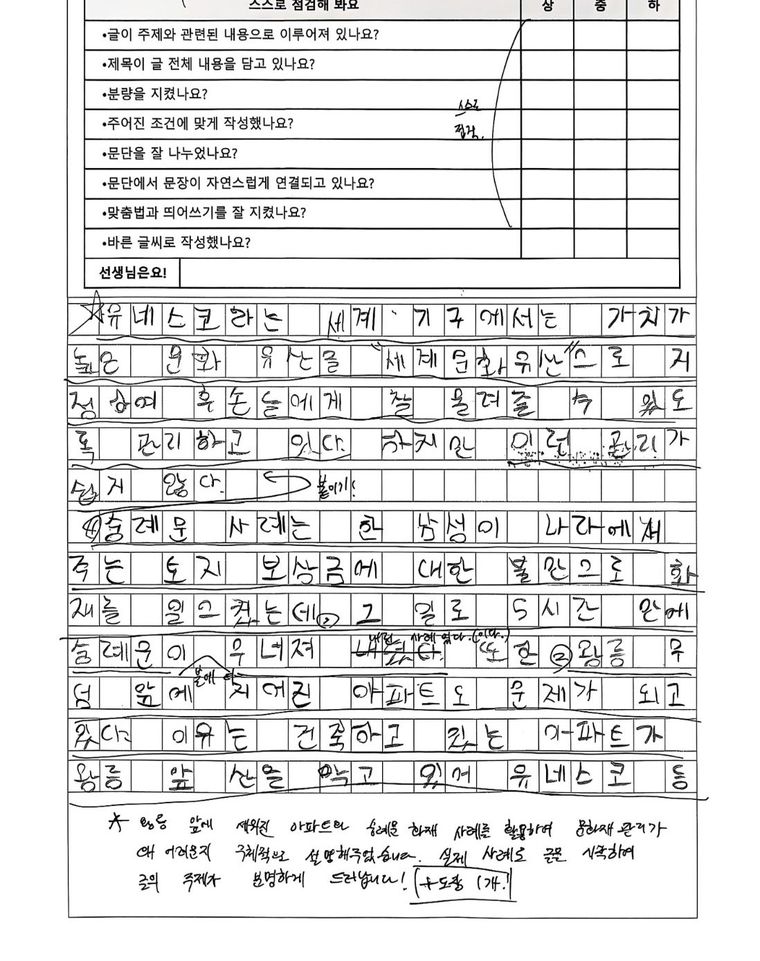 스스로 점검해 봐요 상 중 하
•글이 주제와 관련된 내용으로 이루어져 있나요?
•제목이 글 전체 내용을 담고 있나요?
•분량을 지켰나요?
•주어진 조건에 맞게 작성했나요?
스스로
점검.
•문단을 잘 나누었나요?
•문단에서 문장이 자연스럽게 연결되고 있나요?
•맞춤법과 띄어쓰기를 잘 지켰나요?
•바른 글씨로 작성했나요?
선생님은요!
유네스코라는 세계 기구에서는 가치가
높은 문화 유산을 "세계문화유산"으로 지
정하여 후손들에게 잘 물려줄 수 있도
록 관리하고 있다. 하지만 이런 관리가
쉽지 않다. 붙이기!
숭례문 사례는 한 남성이 나라에서
주는 토지 보상금에 대한 불만으로 화
재를 일으켰는데, 그 일로 5시간 만에
숭례문이 무너져 내렸다. 또한 왕릉 무
불에 타
덤 앞에 지어진 아파트도 문제가 되고
있다. 이유는 건축하고 있는 아파트가
왕릉 앞 산을 막고 있어 유네스코 등
★ 왕릉 앞에 세워진 아파트와 숭례문 화재 사례를 활용하여 문화재 관리가
왜 어려운지 구체적으로 설명해주었습니다. 실제 사례도 글의 주제가 분명하게 드러납니다!